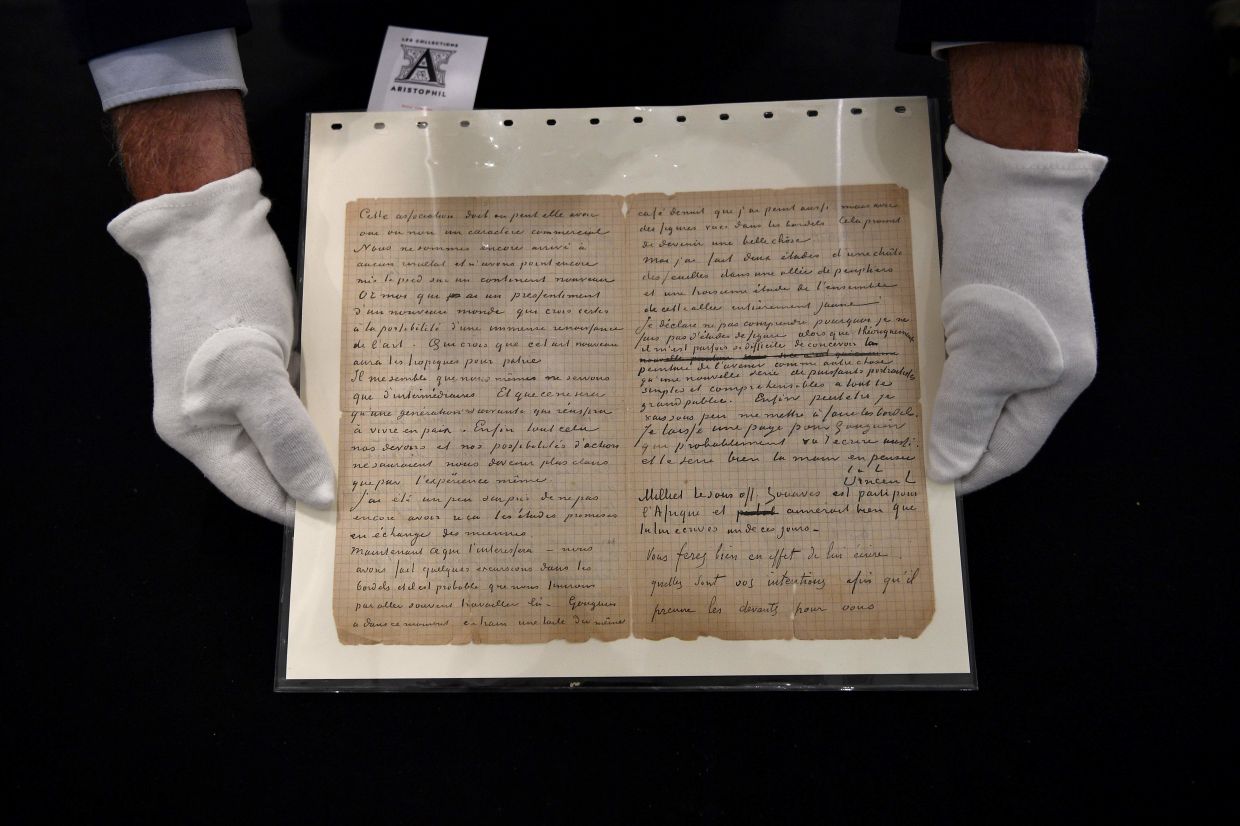 LES COLLECTIONS
A
ARISTOPHIL
Cette association doit ou peut elle avoir
oui ou non un caractère commercial
Nous ne sommes encore arrivé à
aucun résultat et n'avons point encore
mis le pied sur un continent nouveau
Or moi que ai un pressentiment
d'un nouveau monde qui crois certes
à la possibilité d'une immense renaissance
de l'art. Qui crois que cet art nouveau
aura les tropiques pour patrie
Il me semble que nous mêmes ne servons
que d'intermédiaires Et que ce ne sera
qu'une génération suivante qui réussira
à vivre en paix. Enfin tout cela
nos devoirs et nos possibilités d'action
ne sauraient nous devenir plus clairs
que par l'expérience même
J'ai été un peu surpris de ne pas
encore avoir reçu les études promises
en échange des miennes
Maintenant ce qui t'interessera – nous
avons fait quelques excursions dans les
bordels et il est probable que nous finirons
par aller souvent travailler là – Gauguin
a dans ce moment en train une toile du même
café de nuit que j'ai peint aussi mais avec
des figures vues dans les bordels Cela promet
de devenir une belle chose
Moi j'ai fait deux études d'une chûte
des feuilles dans une allée de peupliers
et une troisieme étude de l'ensemble
de cette allée entièrement jaune
Je déclare ne pas comprendre pourquoi je ne
fais pas d'études de figure alors que théoriquement
il m'est parfois si difficile de concevoir la
peinture de l'avenir comme autre chose
qu'une nouvelle série de puissants portraitistes
simples et compréhensibles à tout le
grand public. Enfin peut etre je
vais sous peu me mettre à faire les bordels.
Je laisse une page pour Gauguin
qui probablement va t'écrire aussi.
et te serre bien la main en pensée
t. à t.
Vincent
Milliet le sous off. Zouaves est parti pour
l'Afrique et aimerait bien que
tu lui écrives un de ces jours –
Vous ferez bien en effet de lui écrire
quelles sont vos intentions afin qu'il
prenne les devants pour vous